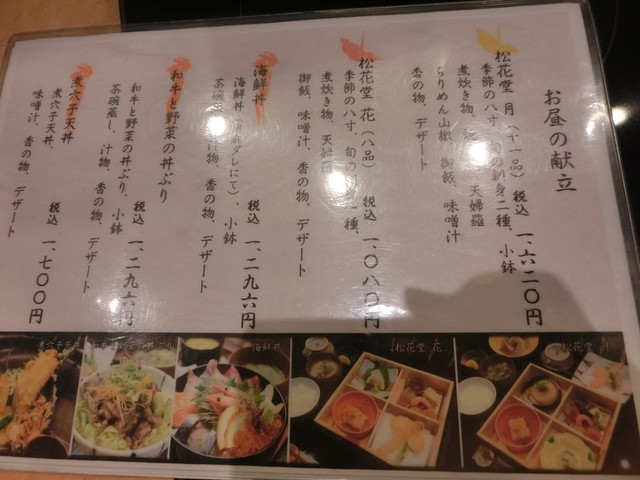 お昼の献立
松花堂 月（十一品） 税込 一、六二〇円
季節の八寸、旬の刺身二種、小鉢
煮炊き物、天婦羅
ちりめん山椒、御飯、味噌汁
香の物、デザート
松花堂 花（八品） 税込 一、〇八〇円
季節の八寸、旬の 種、
煮炊き物、天婦羅
御飯、味噌汁、香の物、デザート
海鮮丼 税込 一、二九六円
海鮮丼 ダレにて）、小鉢
茶碗 汁物、香の物、デザート
和牛と野菜の丼ぶり 税込 一、二九六円
和牛と野菜の丼ぶり、小鉢
茶碗蒸し、汁物、香の物、デザート
煮穴子天丼 税込 一、七〇〇円
煮穴子天丼、
味噌汁、香の物、デザート
煮穴子天丼
海鮮丼
松花堂 花
松花堂 月